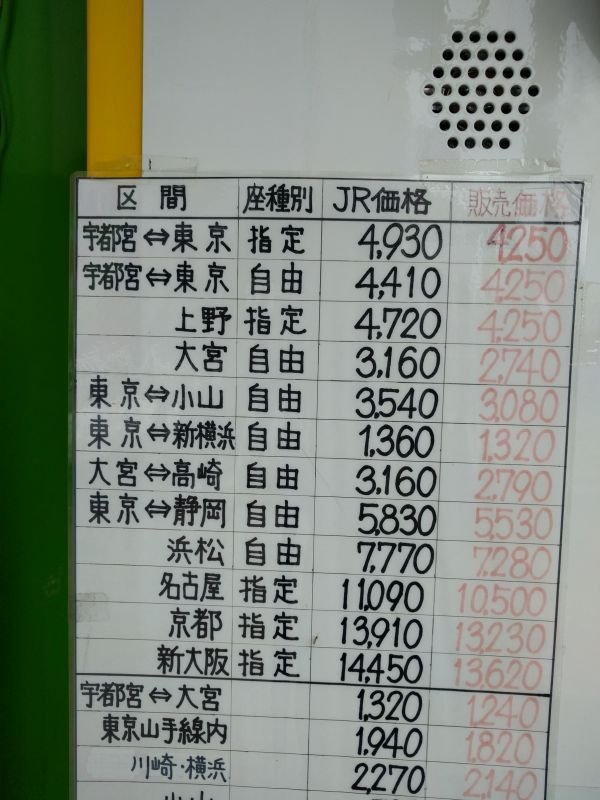 区間 座種別 JR価格 販売価格
宇都宮⇔東京 指定 4,930 4,250
宇都宮⇔東京 自由 4,410 4,250
上野 指定 4,720 4,250
大宮 自由 3,160 2,740
東京⇔小山 自由 3,540 3,080
東京⇔新横浜 自由 1,360 1,320
大宮⇔高崎 自由 3,160 2,790
東京⇔静岡 自由 5,830 5,530
浜松 自由 7,770 7,280
名古屋 指定 11,090 10,500
京都 指定 13,910 13,230
新大阪 指定 14,450 13,620
宇都宮⇔大宮 1,320 1,240
東京山手線内 1,940 1,820
川崎・横浜 2,270 2,140